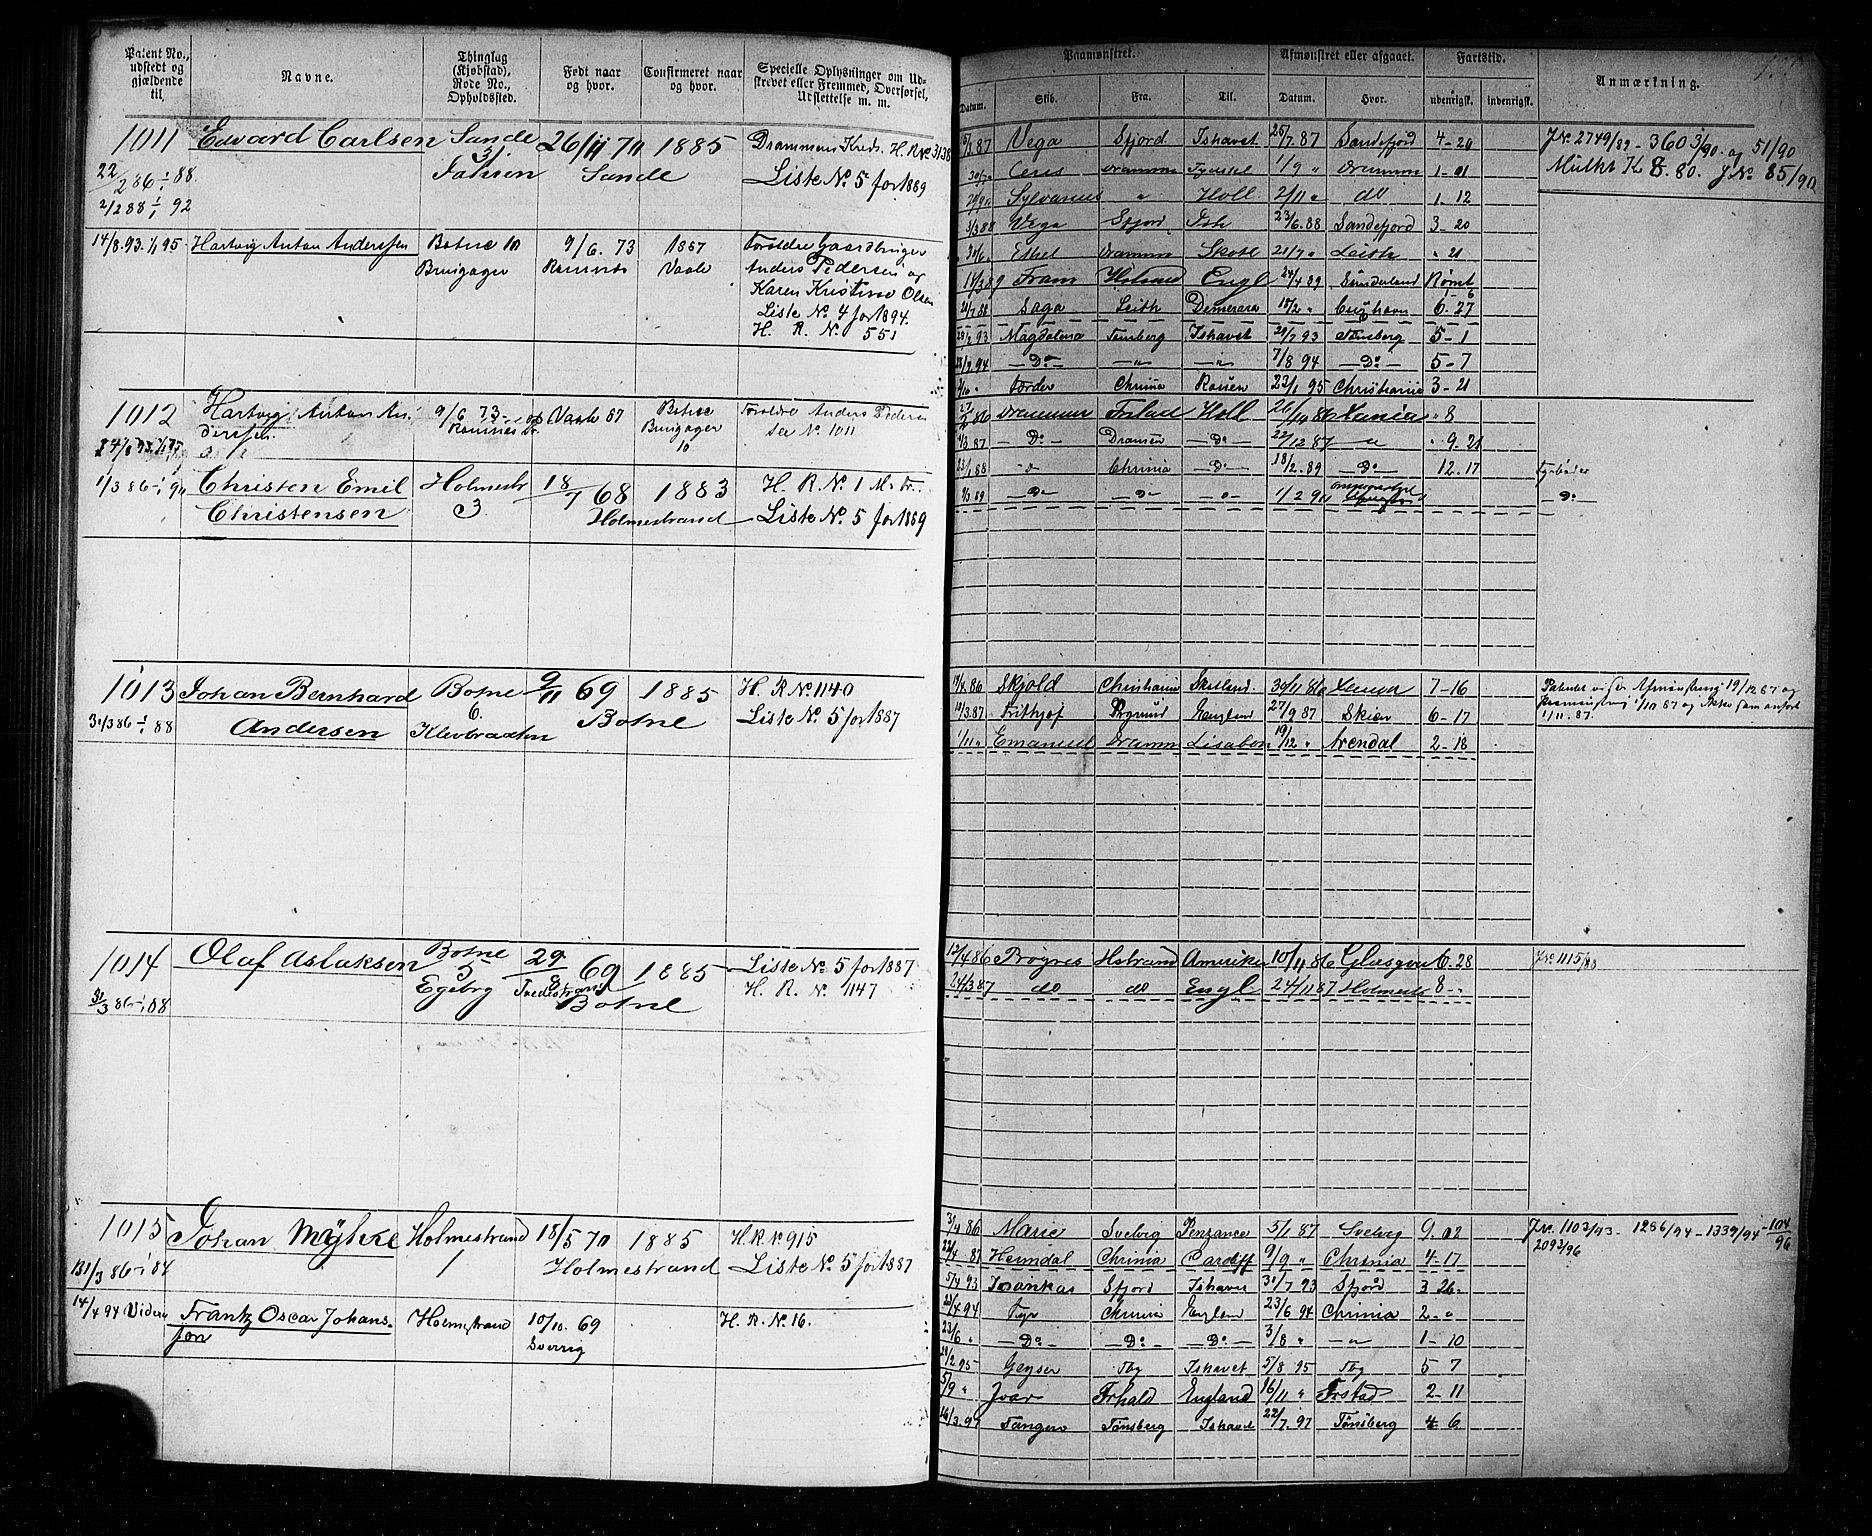 Patent No., udstedt og gjældende til.
Navne.
Thinglag (Kjøbstad), Rode No., Opholdssted.
Født naar og hvor.
Confirmeret naar og hvor.
Specielle Oplysninger om Udskrevet eller Fremmed, Overførsel, Udslettelse m. m.
1011 Edvard Carlsen Sande 26/11 70 1885 Drammens Kreds. H. R No 3138
22/2 86 - 1/1 88. Sande Liste No. 5 for 1889
2/2 88 1/1 92
14/8. 93. 1/1 95 Hartvig Anton Anderssen Botne 10 9/6. 73 1887 Forældre Gaardbruger
Bruigager Ramnes Vaale Anders Pedersen og
Karen Kristine Olsen
Liste No 4 for 1894.
H. R. N. 551
1012 Hartvig Anton An- 9/6 73 Vaale 87 Botne Forældre Anders Peders
derssen. Ramnes Bruigager see No. 1011
10
1/3 86 - 1/1 90 Christen Emil Holmestr 18/7 68 1883 H. R. No. 1
Christensen 3. Holmestrand Liste No. 5 for 1889
1013 Johan Bernhard Botne 9/11 69 1885 H. R No 1140
31/3 86 - 1/1 88 Andersen 6. Botne Liste No. 5 for 1887
Klevbraaten
1014 Olaf Aslaksen Botne 29/8 69 1885 Liste No. 5 for 1887
31/3 86 - 1/1 08 5 Botne H. R. No. 1147
Egebrg
1015 Johan Mÿhre Holmestrand 18/5 70 1885 H. R. No 915
31/3 86 - 1/1 84 1 Holmestrand Liste No. 5 for 1887
14/4 94 Videre Frantz Oscar Johans- Holmestrand 10/10. 69 H. R. No 16.
son Sverrig
Paamønstret.
Afmønstret eller afgaaet.
Fartstid.
Anmærkning.
Datum. Skib. Fra. Til. Datum. Hvor. udenrigsk. indenrigsk.
Vega Sfjord Ishavet 25/7 87 Sandefjord 4-20 J.No. 2749/89 - 3603/90. og 51/90
Ceres Dramm 1/9 " Dramm 1-01 Mulkt K 8. 80. J No 85/90
Sylvanus " Holl 2/11 " do 1-12
3/3 88 Vega Sfjord Ish 23/6. 88 Sandefjord 3-20
30/6 Ethel Dramm Skotl 21/7 " Leith " 21
Fram Hstrand Engl 24/4 89 Sunderland Rømt
Saga Leith Demerara 18/2 " Cuxhavn 6-27
28/2 93 Magdalena Tønsberg Ishavet 29/7 93 Tønsberg 5-1
28/2 94 -Do- -"- -"- 7/8 94 -Do- 5-7
Fordes Chrinia Rouen 22/1 95 Christiania 3-21
Drammen Holl 8
9/3 87 -Do- Dramen -Do- 22/12 87 " . 9. 21
23/1 88 Chrinia -Do- 18/2-89 -Do- 12. 17
9/3 89 -Do- -Do- -Do-
19/4. 86 Skjold Christiania 30/11 86 7-16 Patentet viser Afmønstring 19/12 87 og
18/3. 87 Frithjof England 27/9 87 Skien 6-17 Paamønstring 1/10 87 og ikke som anført
1/11 " Emanuel Dramm Lisabon 19/12 " Arendal 2-18 1/11. 87.
12/4 86 Hstrand Amerika 10/11 86 Glasgow 6. 28 J.No 1115/88
24/3 87 do do Engl 24/11 87 Holmestr 8-"
3/4 86 Marie Svelvig Penzance 5/1 87 Svelvig 9. 02 J.No. 1103/93 - 1286/94 - 1339/94 - 104/96
22/4 87 Heimdal Chrinia Cardiff 9/9 " Chrinia 4-17 2093/96
5/4 93 Sfjord Ishavet 31/7 93 Sfjord 3 26-
23/4 94 Tyr Chrinia Englan 23/6 94 Chrinia 2-"
23/6 " -Do- -Do- -Do- 3/8 " -"- 1-10
28/2 95 Geyser Tbg Ishavet 5/8 95 Tbg 5 7
5/9 " Ivar Frhald England 16/11 " Frstad 2-11
16/3 97 Fangero Tønsberg Ishavet 22/7. 97 Tønsberg 4 6